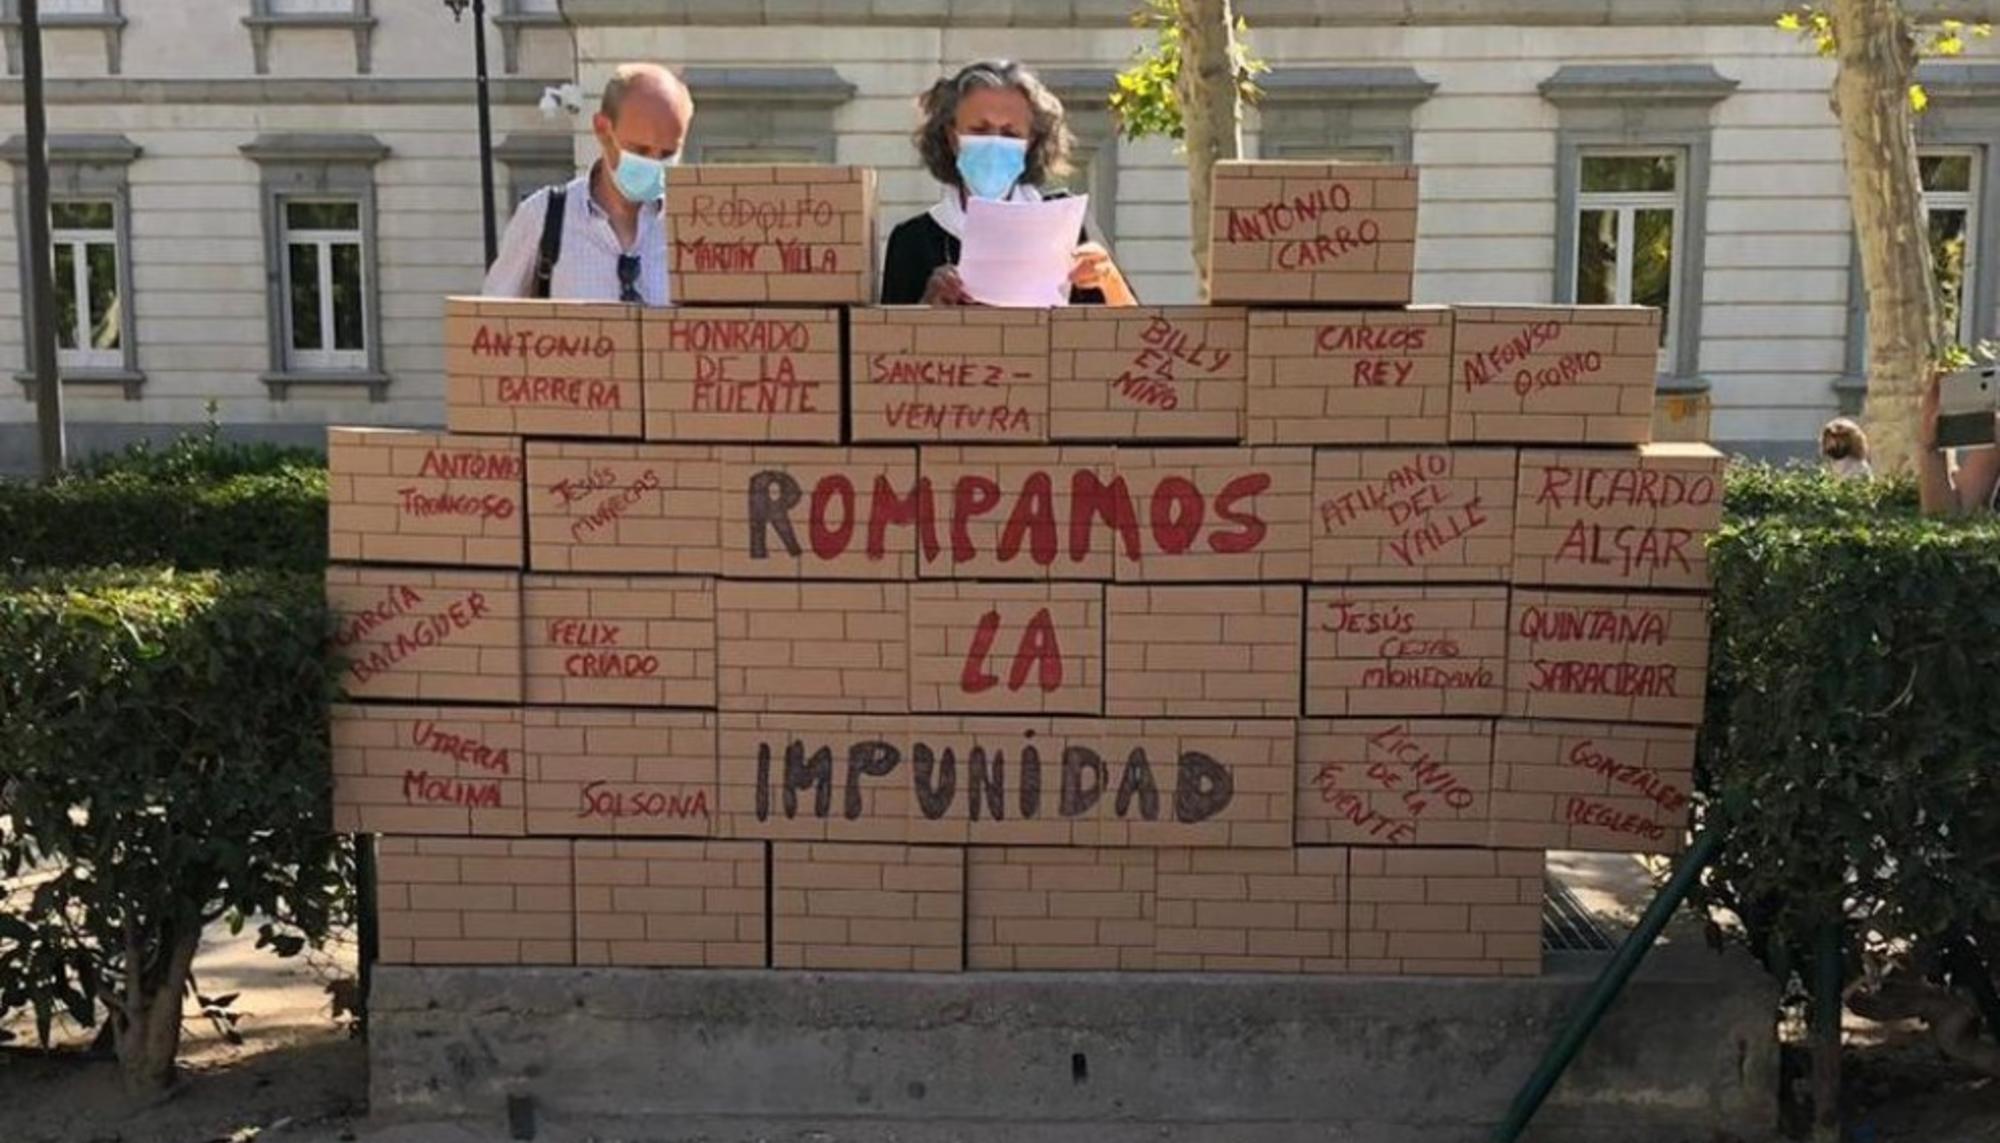 RODOLFO
MARTÍN VILLA
ANTONIO
CARRO
ANTONIO
BARRERA
HONRADO
DE LA
FUENTE
SÁNCHEZ-
VENTURA
BILLY
EL
NIÑO
CARLOS
REY
ALFONSO
OSORIO
ANTONIO
TRONCOSO
JESÚS
MUÑECAS
ROMPAMOS
ATILANO
DEL
VALLE
RICARDO
ALGAR
GARCÍA
BALAGUER
FELIX
CRIADO
LA
JESÚS
CEJAS
MOHEDANO
QUINTANA
SARACIBAR
UTRERA
MOLINA
SOLSONA
IMPUNIDAD
LICINIO
DE LA
FUENTE
GONZÁLEZ
REGLERO